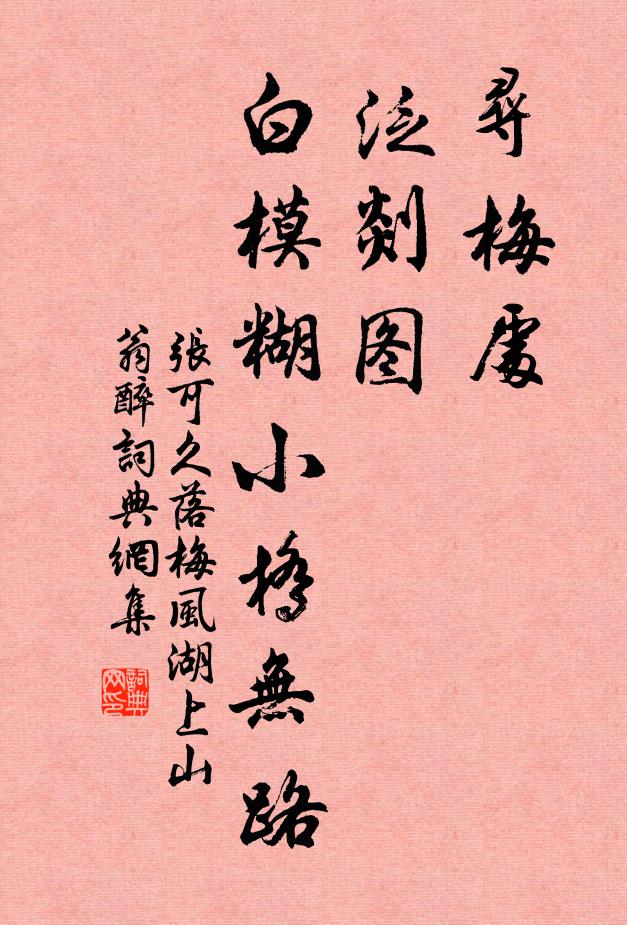 尋梅處
泛剡图
白模糊小橋無路
張可久落梅風湖上山
翁醉詞典網集
詞典网印